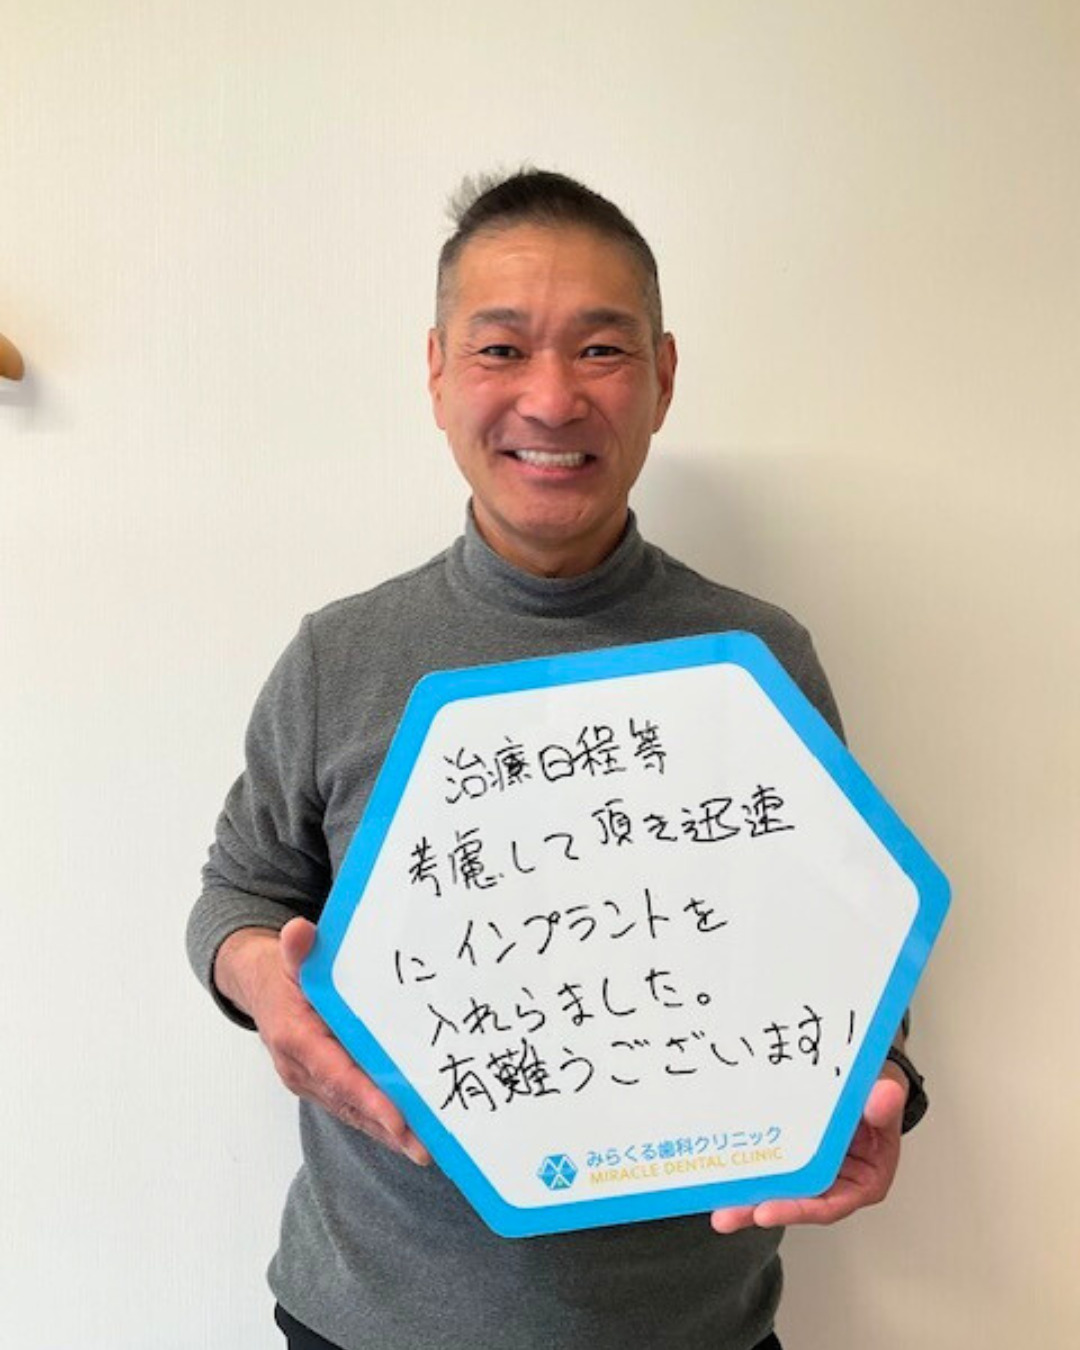 治療日程等
考慮して頂き迅速
にインプラントを
入れらました。
有難うございます!
みらくる歯科クリニック
MIRACLE DENTAL CLINIC